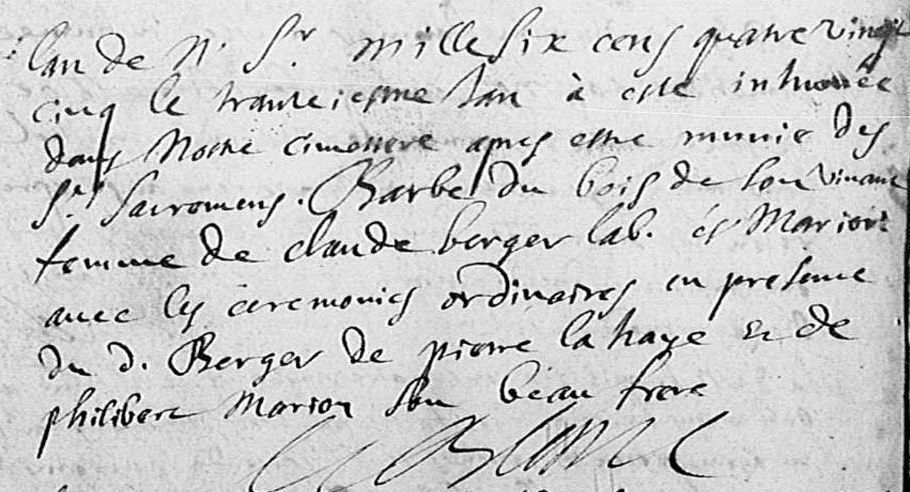 lan de N. Sr mille six cens quatre vingt
cinq le tranteiesme Jan à esté inhumée
dans Nostre cimettere apres estre munie des
Sts Sacremens. Barbe du bois de son vivant
femme de claude berger lab. és Marions
avec les ceremonies ordinaires en presence
du d. Berger de pierre la haye et de
philibert Marion son beau frere
LeBlanc